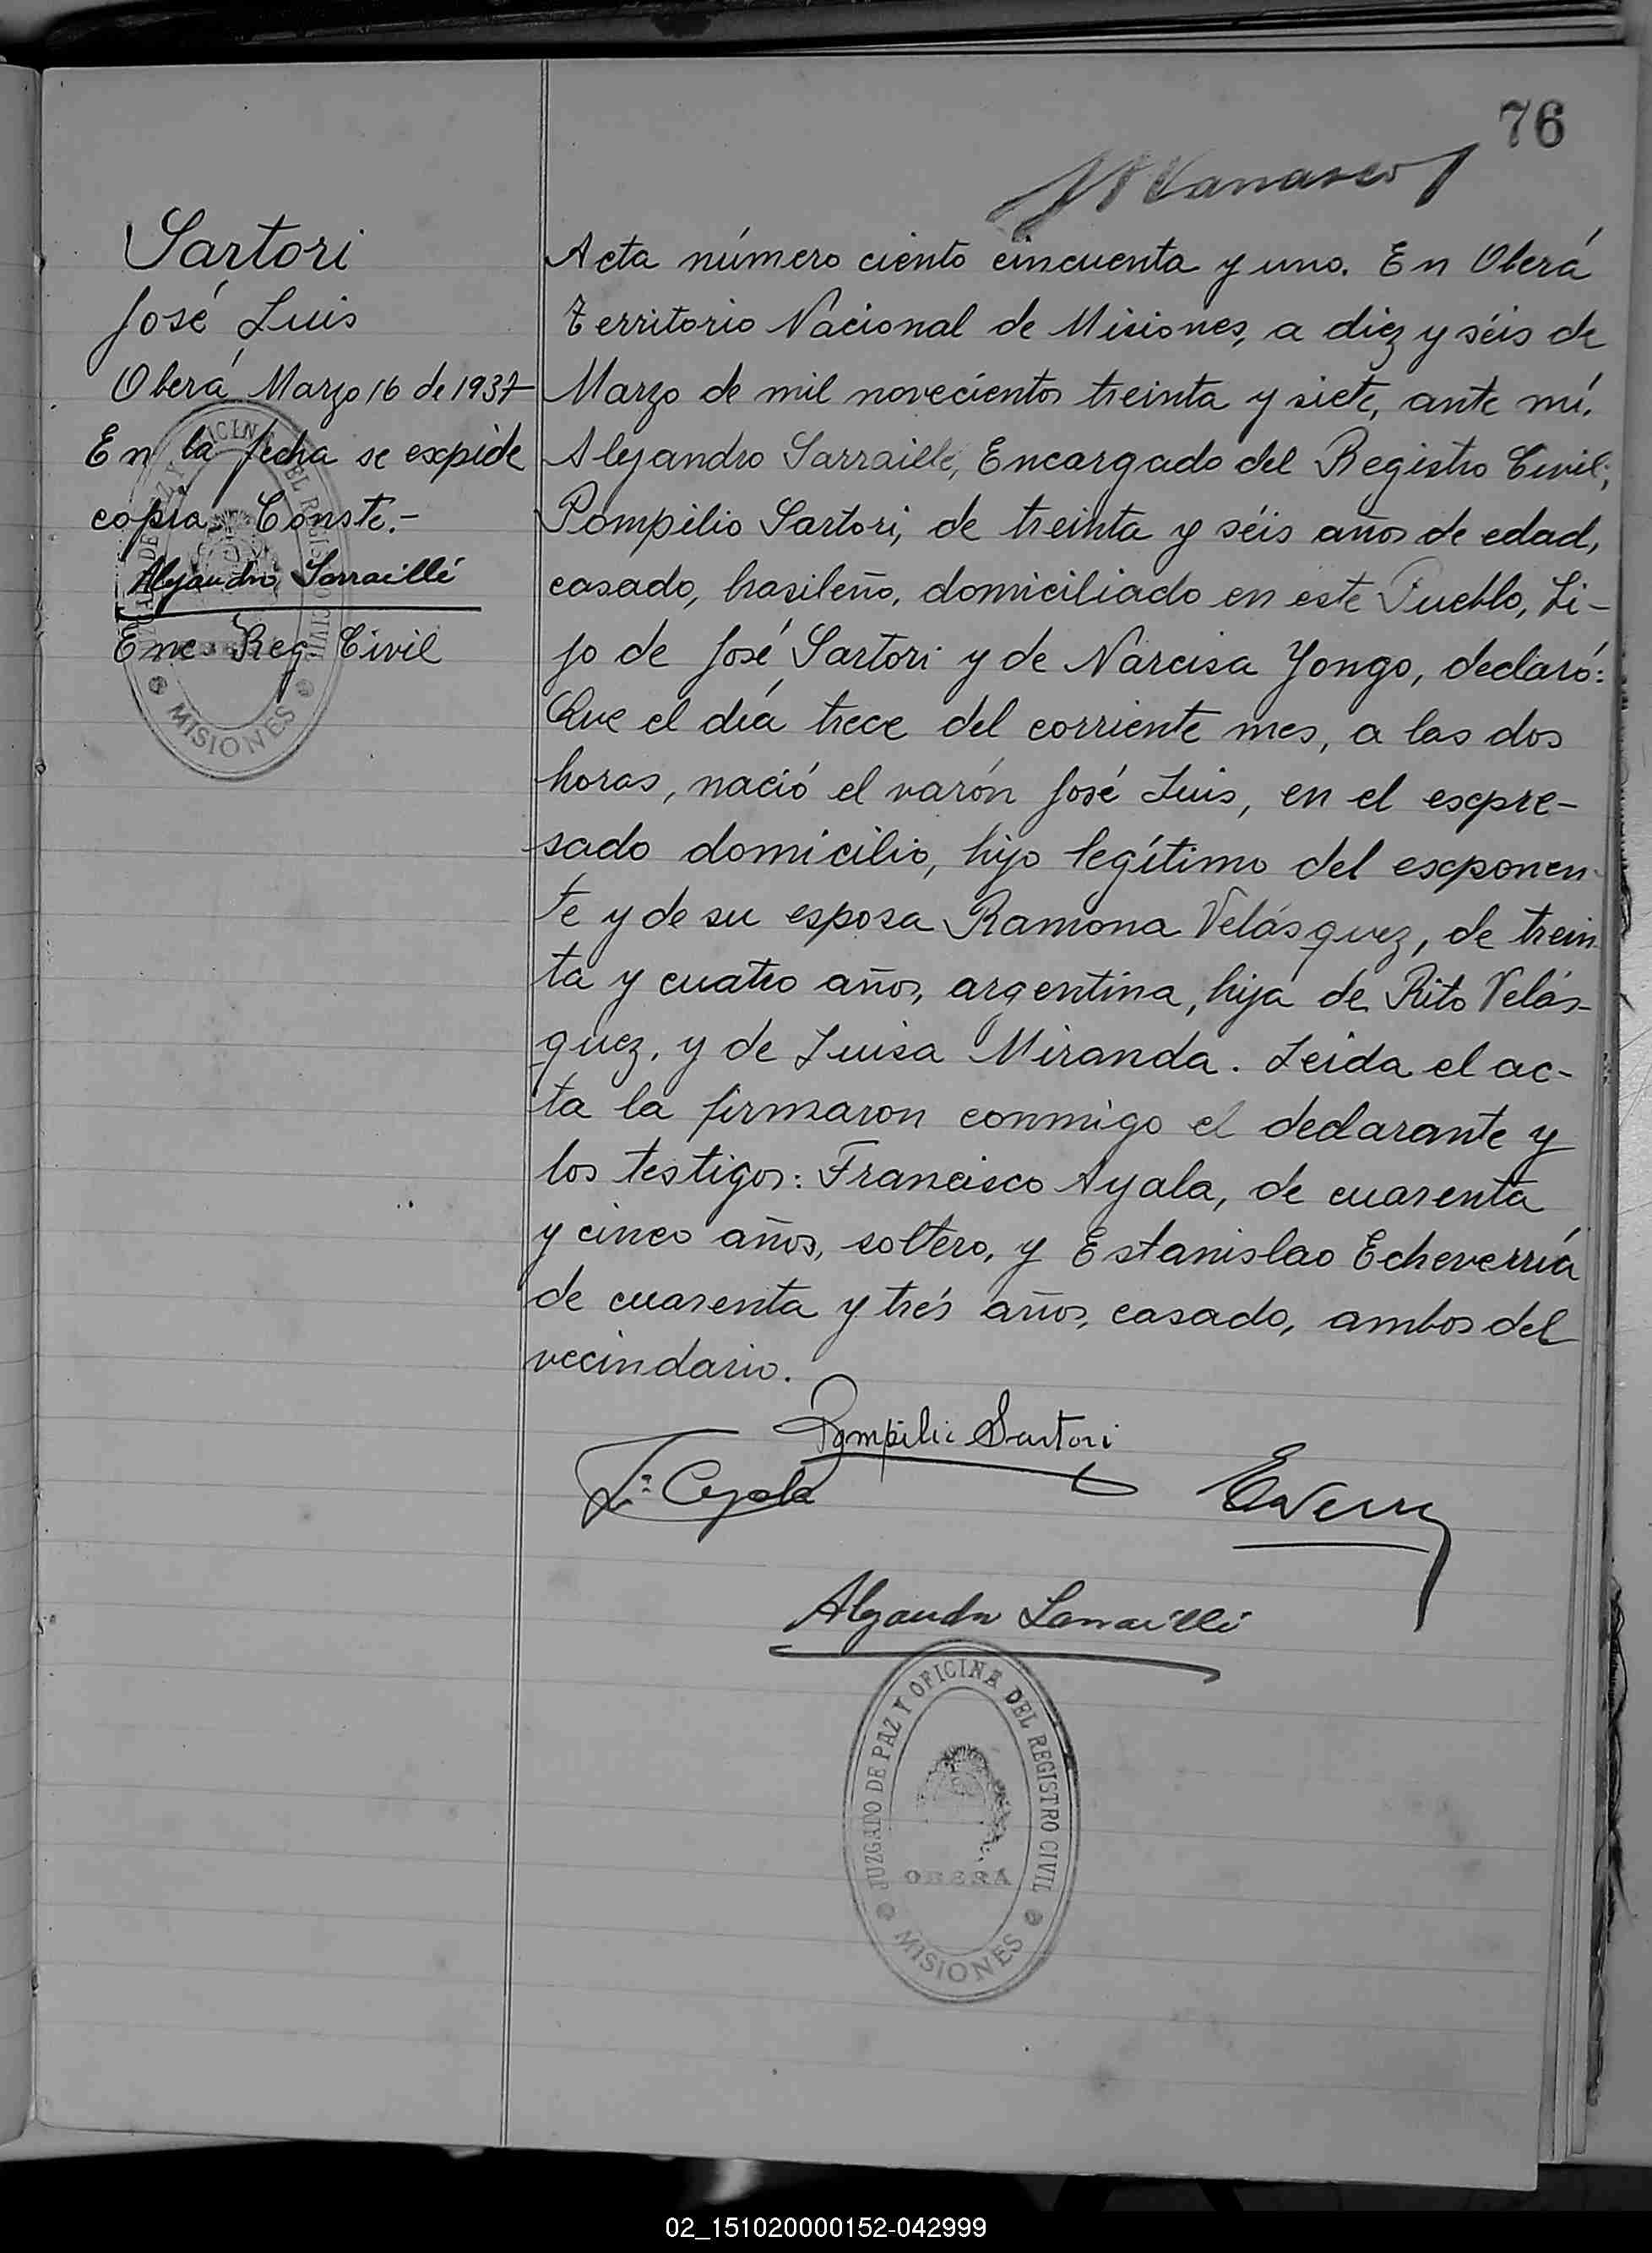 76
Sartori
José Luis
Oberá, Marzo 16 de 1937
En la fecha se expide
copia. Conste.-
Alejandro Sarraillé
Enc. Reg. Civil
MISIONES
Acta número ciento cincuenta y uno. En Oberá
Territorio Nacional de Misiones, a diez y séis de
Marzo de mil novecientos treinta y siete, ante mí.
Alejandro Sarraillé, Encargado del Registro Civil;
Pompilio Sartori, de treinta y séis años de edad,
casado, brasileño, domiciliado en este Pueblo, hi-
jo de José Sartori y de Narcisa Yongo, declaró:
Que el día trece del corriente mes, a las dos
horas, nació el varón José Luis, en el expre-
sado domicilio, hijo legítimo del exponen-
te y de su esposa Ramona Velásquez, de trein
ta y cuatro años, argentina, hija de Rito Velás-
quez, y de Luisa Miranda. Leida el ac-
ta la firmaron conmigo el declarante y
los testigos: Francisco Ayala, de cuarenta
y cinco años, soltero, y Estanislao Echeverría
de cuarenta y trés años, casado, ambos del
vecindario.
Pompilio Sartori
Alejandro Sarraillé
JUZGADO DE PAZ Y OFICINA DEL REGISTRO CIVIL
OBERÁ
MISIONES
02_151020000152-042999